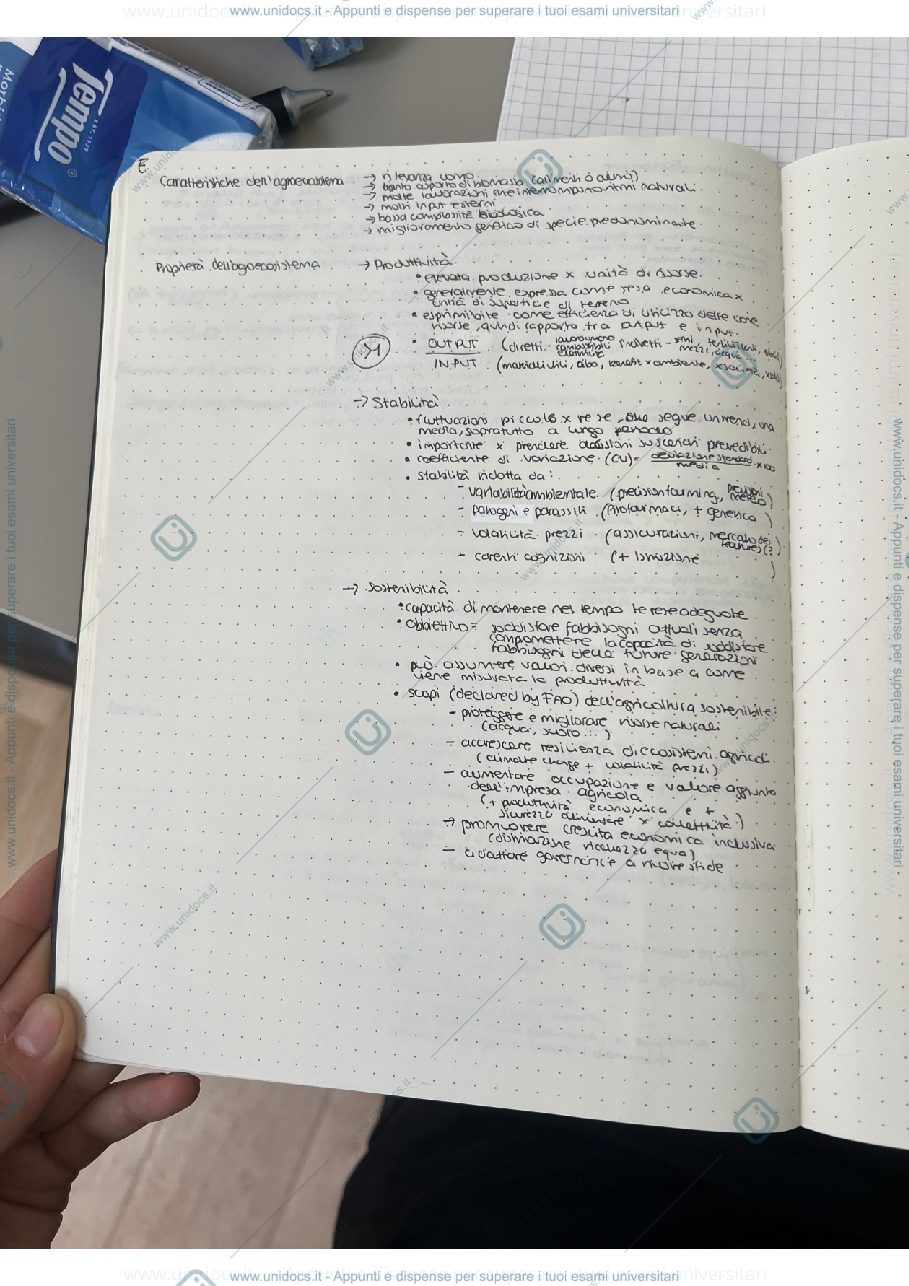 www.unidocs.it - Appunti e dispense per superare i tuoi esami universitari
Tempo
EST. 1929
E
Caratteristiche dell'agroecosistema
→ rilevanza uomo
→ tanto asporto di biomassa (alimenti o altro)
→ molte lavorazioni che interrompono ritmi naturali
→ molti input esterni
→ bassa complessità biologica
→ miglioramento genetico di specie predominante
Proprietà dell'agroecosistema → Produttività
• elevata produzione x unità di risorse.
• generalmente espressa come resa economica x
unità di superficie di terreno
• esprimibile come efficienza di utilizzo delle
risorse, quindi rapporto tra output e input.
• OUTPUT (diretti: combustibili elettricità indiretti - mezzi, acqua
INPUT (cibo,
>1
→ Stabilità
• fluttuazioni piccole x rese, che segue un trend, una
media, sopratutto a lungo periodo
• importante x prendere decisioni su scenari prevedibili
• coefficiente di variazione (CV) = deviazione standard x 100
media
• stabilità ridotta da:
- variabilità ambientale (precision farming,
- patogeni e parassiti (fitofarmaci, + genetica)
- volatilità prezzi (assicurazioni, mercato dei
features (?)
- carenti cognizioni (+ istruzione
)
→ Sostenibilità
• capacità di mantenere nel tempo le rese adeguate
• obbiettivo = soddisfare fabbisogni attuali senza
compromettere la capacità di soddisfare
fabbisogni delle future generazioni
• può assumere valori diversi in base a come
viene misurata la produttività
• scopi (declared by FAO) dell'agricoltura sostenibile:
- proteggere e migliorare risorse naturali
(acqua, suolo...)
- accrescere resilienza di ecosistemi agricoli
(climate change + volatilità prezzi)
- aumentare occupazione e valore aggiunto
dell'impresa agricola
(+ produttività economica e +
sicurezza alimentare x collettività)
→ promuovere crescita economica inclusiva
(distribuzione ricchezza equa)
- adattare governance a nuove sfide
www.unidocs.it - Appunti e dispense per superare i tuoi esami universitari